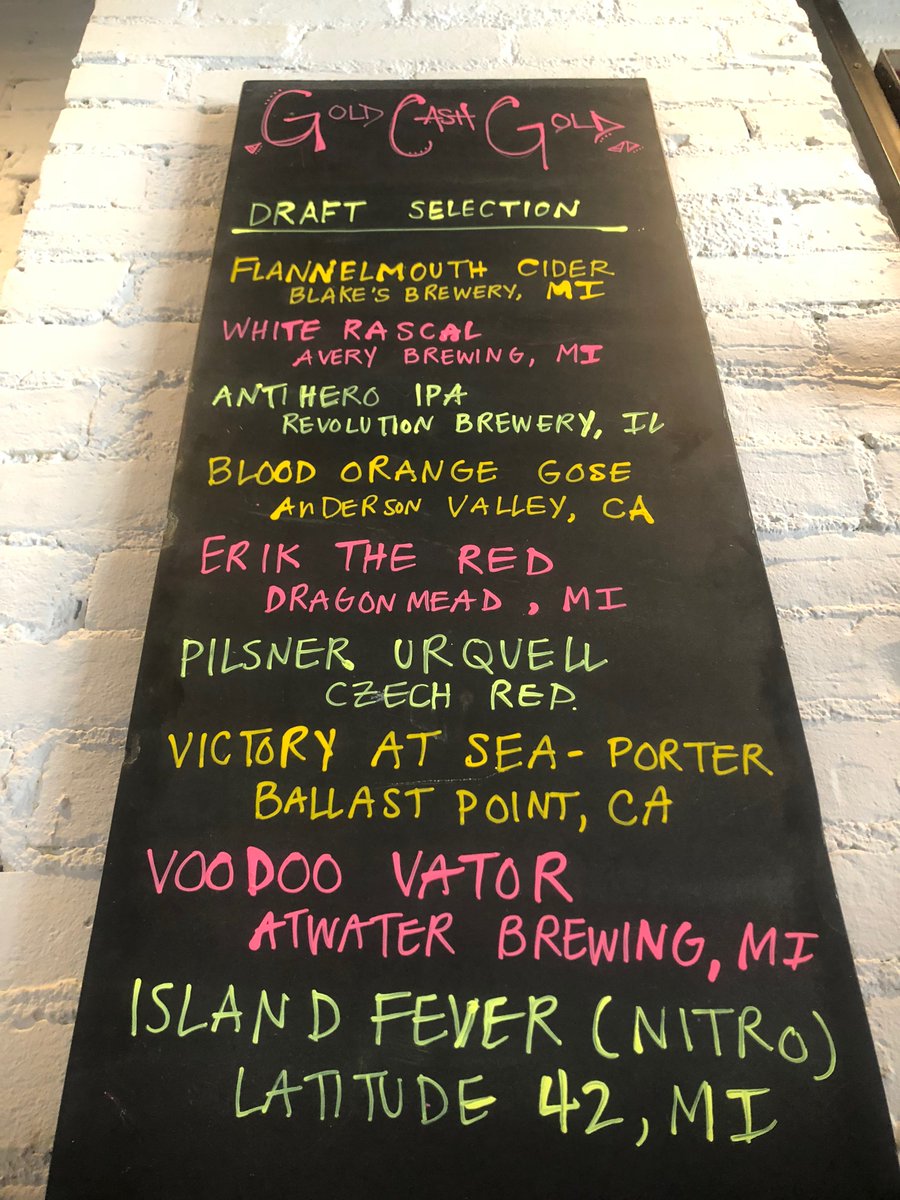 GOLD CASH GOLD
DRAFT SELECTION
FLANNELMOUTH CIDER
BLAKE'S BREWERY, MI
WHITE RASCAL
AVERY BREWING, MI
ANTI HERO IPA
REVOLUTION BREWERY, IL
BLOOD ORANGE GOSE
ANDERSON VALLEY, CA
ERIK THE RED
DRAGONMEAD, MI
PILSNER URQUELL
CZECH REP.
VICTORY AT SEA- PORTER
BALLAST POINT, CA
VOODOO VATOR
ATWATER BREWING, MI
ISLAND FEVER (NITRO)
LATITUDE 42, MI